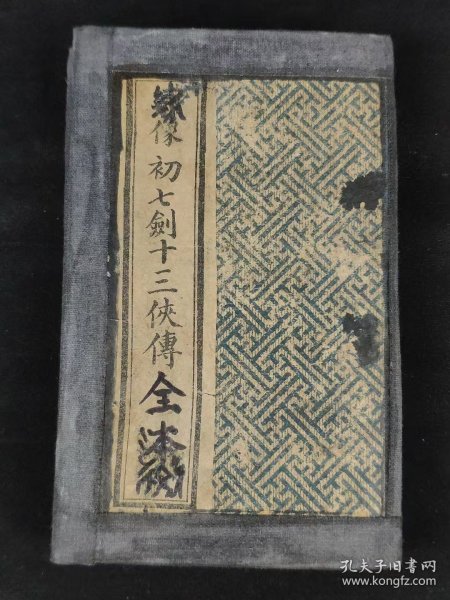 像初七劍十三俠傳全本
孔夫子旧书网
www.kongfz.com